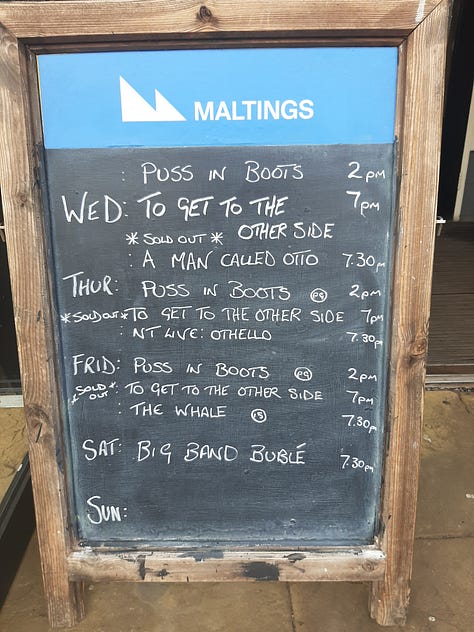 MALTINGS
: PUSS IN BOOTS 2pm
WED: TO GET TO THE 7pm
* SOLD OUT * OTHER SIDE
: A MAN CALLED OTTO 7.30pm
THUR: PUSS IN BOOTS PG 2pm
*SOLD OUT* TO GET TO THE OTHER SIDE 7pm
: NT LIVE: OTHELLO 7.30pm
FRID: PUSS IN BOOTS PG 2pm
*SOLD OUT* : TO GET TO THE OTHER SIDE 7pm
: THE WHALE 15 7.30pm
SAT: BIG BAND BUBLÉ 7.30pm
SUN: